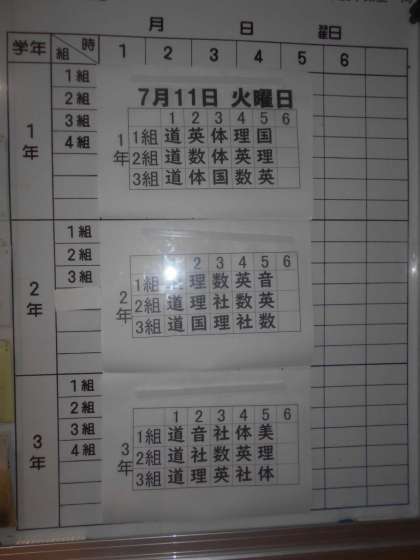 月 日 曜日
学年 組 時 1 2 3 4 5 6
1年
1組
2組
3組
4組
7月11日 火曜日
1 2 3 4 5 6
1年
1組 道 英 体 理 国
2組 道 数 体 英 理
3組 道 体 国 数 英
2年
1組
2組
3組
2 3 4 5 6
2年
1組 理 数 英 音
2組 道 理 社 数 英
3組 道 国 理 社 数
3年
1組
2組
3組
4組
1 2 3 4 5 6
3年
1組 道 音 社 体 美
2組 道 社 数 英 理
3組 道 理 英 社 体